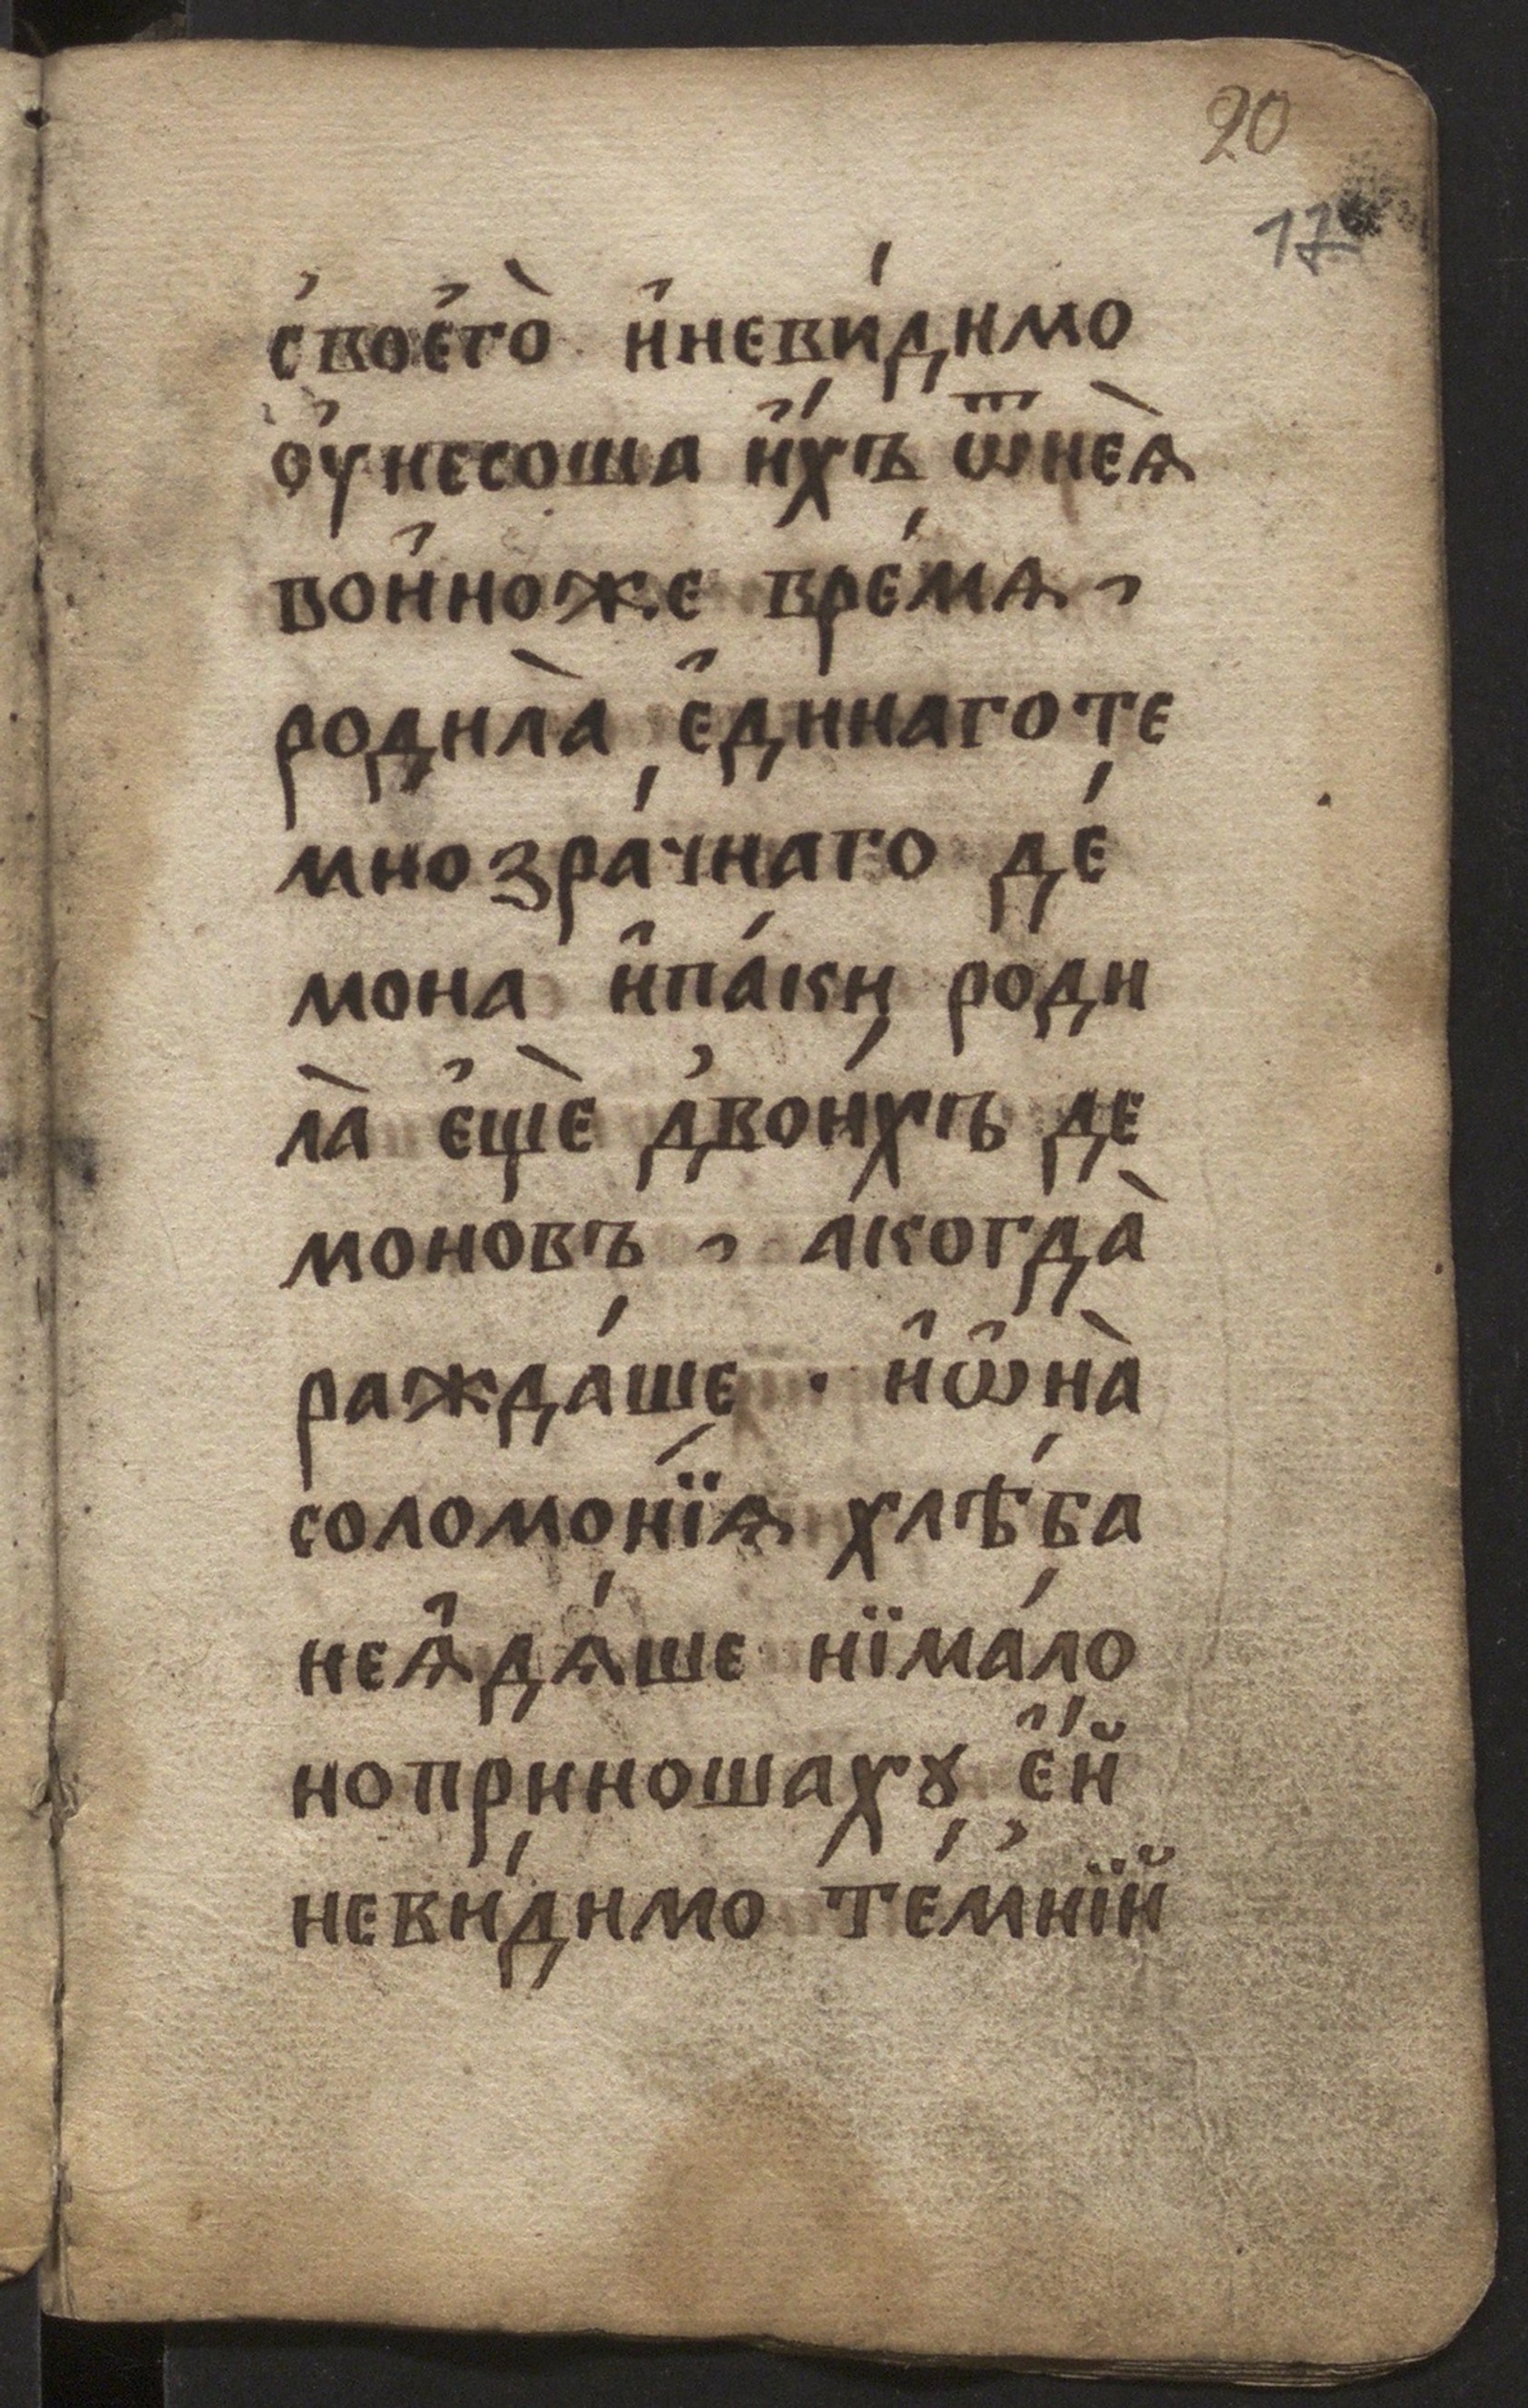 20
17
с҆воє҆го̀ и҆неви́димо
оу҆несоша и҆́хъ ѿнеѧ̀
вои҆ноже вре́мѧ ,
родила̀ є҆динаготе
мнозра́чнаго де́
мона и҆па́ки роди
ла̀ є҆щѐ д҆вои́хъ де
моновъ , акогда̀
ражда́ше . и҆ѡ҆на̀
соломо́нїѧ хлѣ́ба
неѧ҆дѧ́ше нїма́ло
ноприношахꙋ є҆́й
неви́димо те́м҆нїй